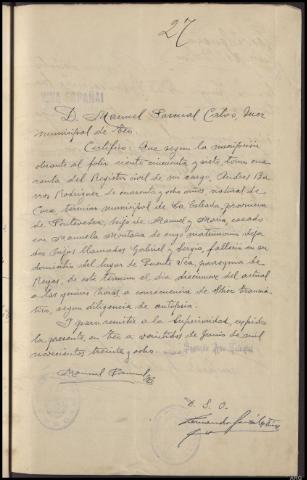 27
D. Manuel Pascual Calvo, Juez
municipal de Teo.
Certifico: Que segun la inscripción
obrante al folio ciento cincuenta y siete, tomo cua
renta del Registro civil de mi cargo, Andres Ba
rros Rodriguez de cuarenta y ocho años, natural de
Cora, termino municipal de La Estrada, provincia
de Pontevedra, hijo de Manuel y Maria, casado
con Manuela Montana de cuyo matrimonio deja
dos hijos llamados Gabriel y Sergio, falleció en su
domicilio del lugar de Puente Vea, parroquia de
Reyes, de este termino el dia diecinueve del actual
a las quince horas a consecuencia de Shoc trauma
tico, segun diligencia de autopsia.
Y para remitir a la Superioridad, expido
la presente, en Teo a veintidos de Junio de mil
novecientos treinta y ocho.
Manuel Pascual
D. S. O.
Fernando